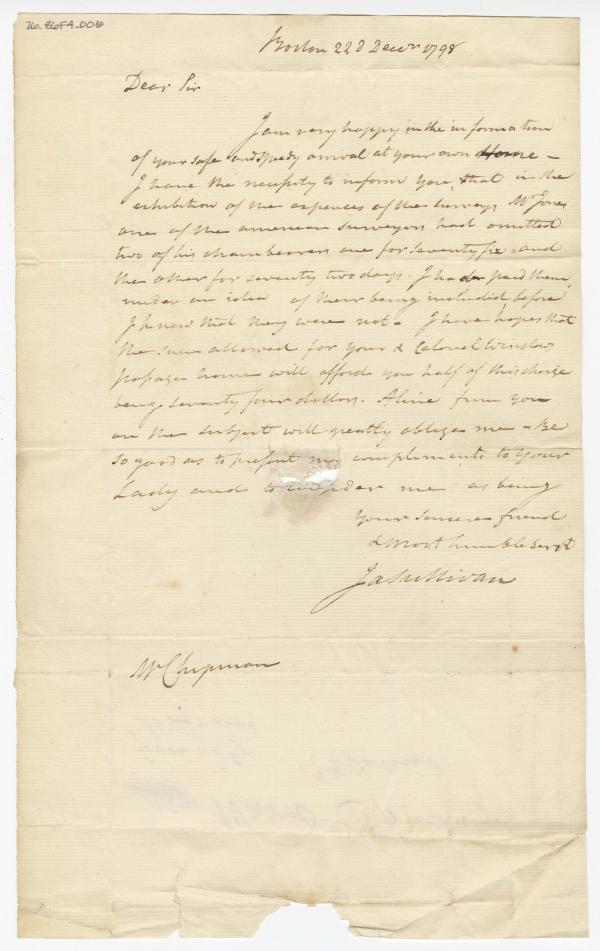 26_86F4_006
Boston 22d Decr 1798
Dear Sir
I am very happy in the information
of your safe and speedy arrival at your own Home -
I have the necessity to inform you, that in the
exhibition of the expences of the surveys Mr Jones
one of the american surveyors had omitted
two of his chainbearers one for seventy six and
the other for seventy two days. I had paid them,
under an idea of their being included, before
I knew that they were not. I have hopes that
the sum allowed for your & Colonel Winslows
passage home will afford you half of this charge
being seventy four dollars. A line from you
on the subject will greatly oblige me - Be
so good as to present my compliments to your
Lady and to consider me as being
your sincere friend
& most humble servt
Ja Sullivan
Mr Chipman